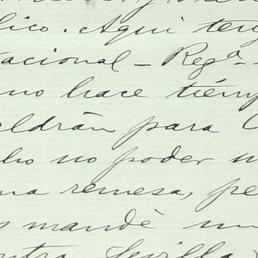 lico. Aqui ten
tacional - Regª.
mo hace tiemp
eldrán para
ho no poder m
na remesa, pe
s mandé un
ntra Sevilla